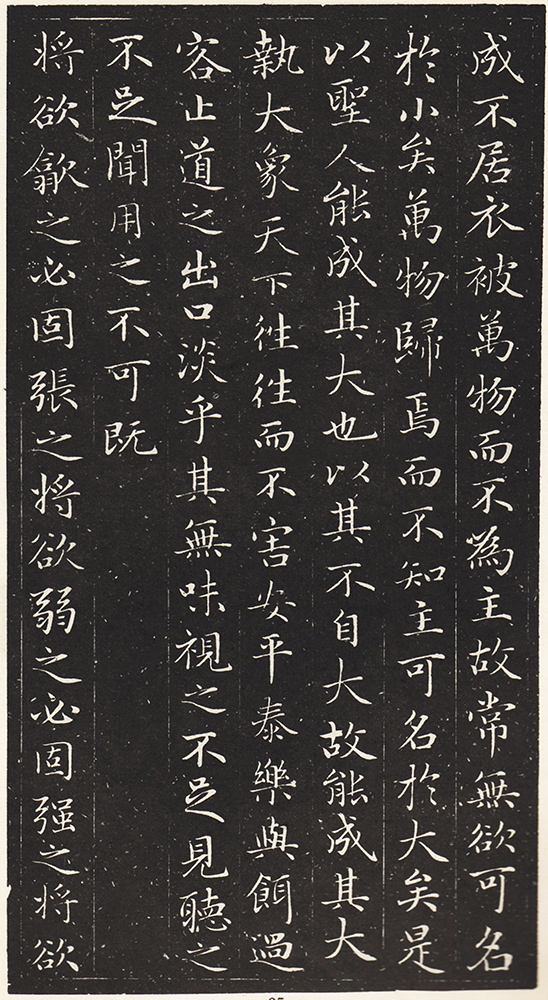 成不居衣被萬物而不為主故常無欲可名
於小矣萬物歸焉而不知主可名於大矣是
以聖人能成其大也以其不自大故能成其大
執大象天下往往而不害安平泰樂與餌過
容止道之出口淡乎其無味視之不足見聽之
不足聞用之不可既
将欲歙之必固張之将欲弱之必固强之将欲